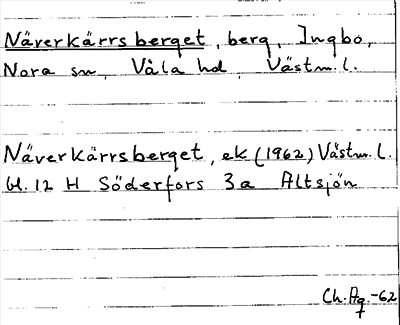 Näverkärrsberget, berg, Ingbo,
Nora sn, Våla hd, Västm. l.
Näverkärrsberget, ek (1962) Västm. l.
bl. 12 H Söderfors 3a Altsjön
Ch. Ag. -62